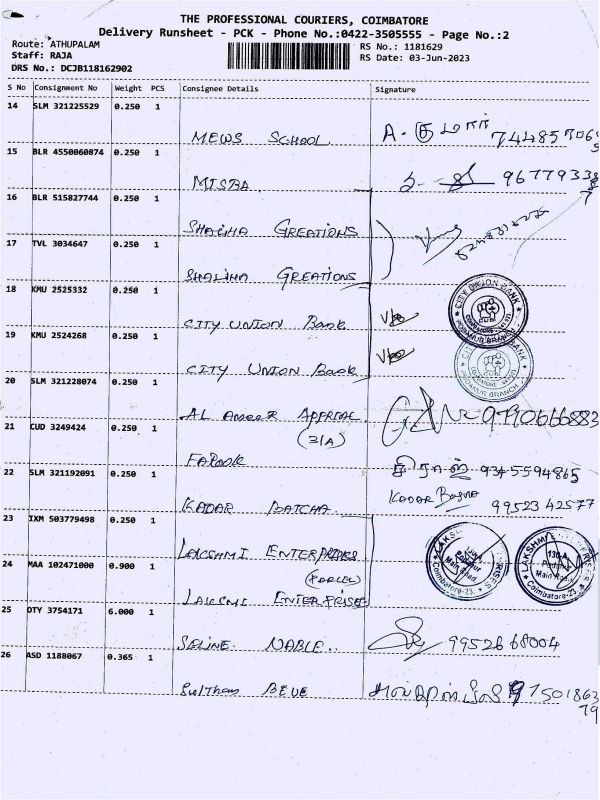 THE PROFESSIONAL COURIERS, COIMBATORE
Delivery Runsheet - PCK - Phone No.:0422-3505555 - Page No.:2
Route: ATHUPALAM
RS No.: 1181629
Staff: RAJA
RS Date: 03-Jun-2023
DRS No.: DCJB118162902
S No Consignment No Weight PCS Consignee Details Signature
14 SLM 321225529 0.250 1
MEWS SCHOOL A. குமார்
15 BLR 4550060874 0.250 1
MISBA
16 BLR 515827744 0.250 1
SHALIHA CREATIONS
17 TVL 3034647 0.250 1
SHALIHA CREATIONS
18 KMU 2525332 0.250 1
CITY UNION Bank
CITY UNION BANK
19 KMU 2524268 0.250 1
CITY UNION Bank
20 SLM 321228074 0.250 1
AL AMEER APPARAL 9790666883
(31A)
21 CUD 3249424 0.250 1
FAROOK 9345594865
22 SLM 321192091 0.250 1
KADAR BATCHA KADAR Basha 9952342577
23 IXM 503779498 0.250 1
LAKSHMI ENTERPRISES
(PARCEL)
24 MAA 102471000 0.900 1
LAKSMI ENTERPRISES
Main Road
Coimbatore-23.
130-A
Main Road
Coimbatore-23.
25 OTY 3754171 6.000 1
9952668004
26 ASD 1188067 0.365 1
Sulthan BEVE